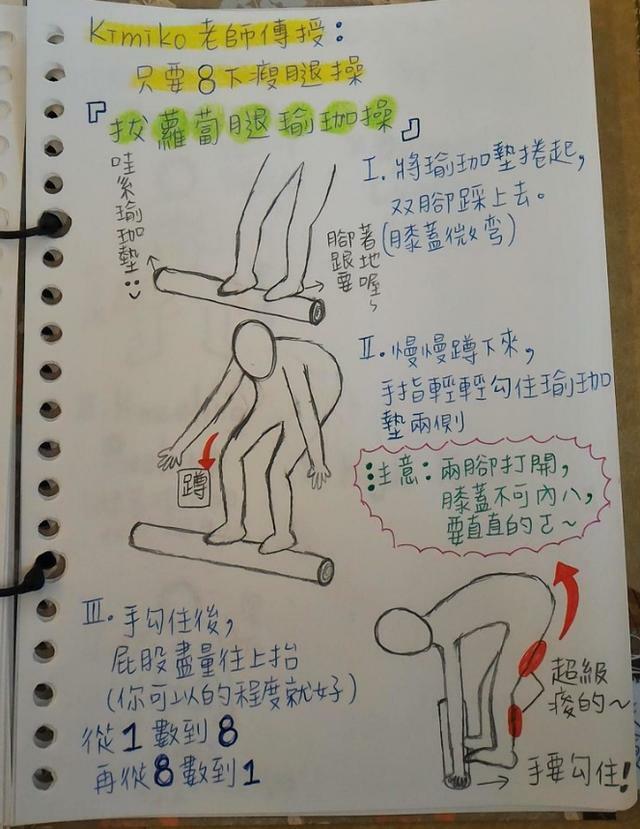 Kimiko老師傳授：
只要8下瘦腿操
『拔蘿蔔腿瑜珈操』
哇系瑜珈墊
I. 將瑜珈墊捲起，
双腳踩上去。
(膝蓋微彎)
腳跟要
著地喔~
II. 慢慢蹲下來，
手指輕輕勾住瑜珈
墊兩側
蹲
注意：兩腳打開，
膝蓋不可內八，
要直直的ㄛ~
III. 手勾住後，
屁股盡量往上抬
(你可以的程度就好)
從1數到8
再從8數到1
超級
痠的~
手要勾住!